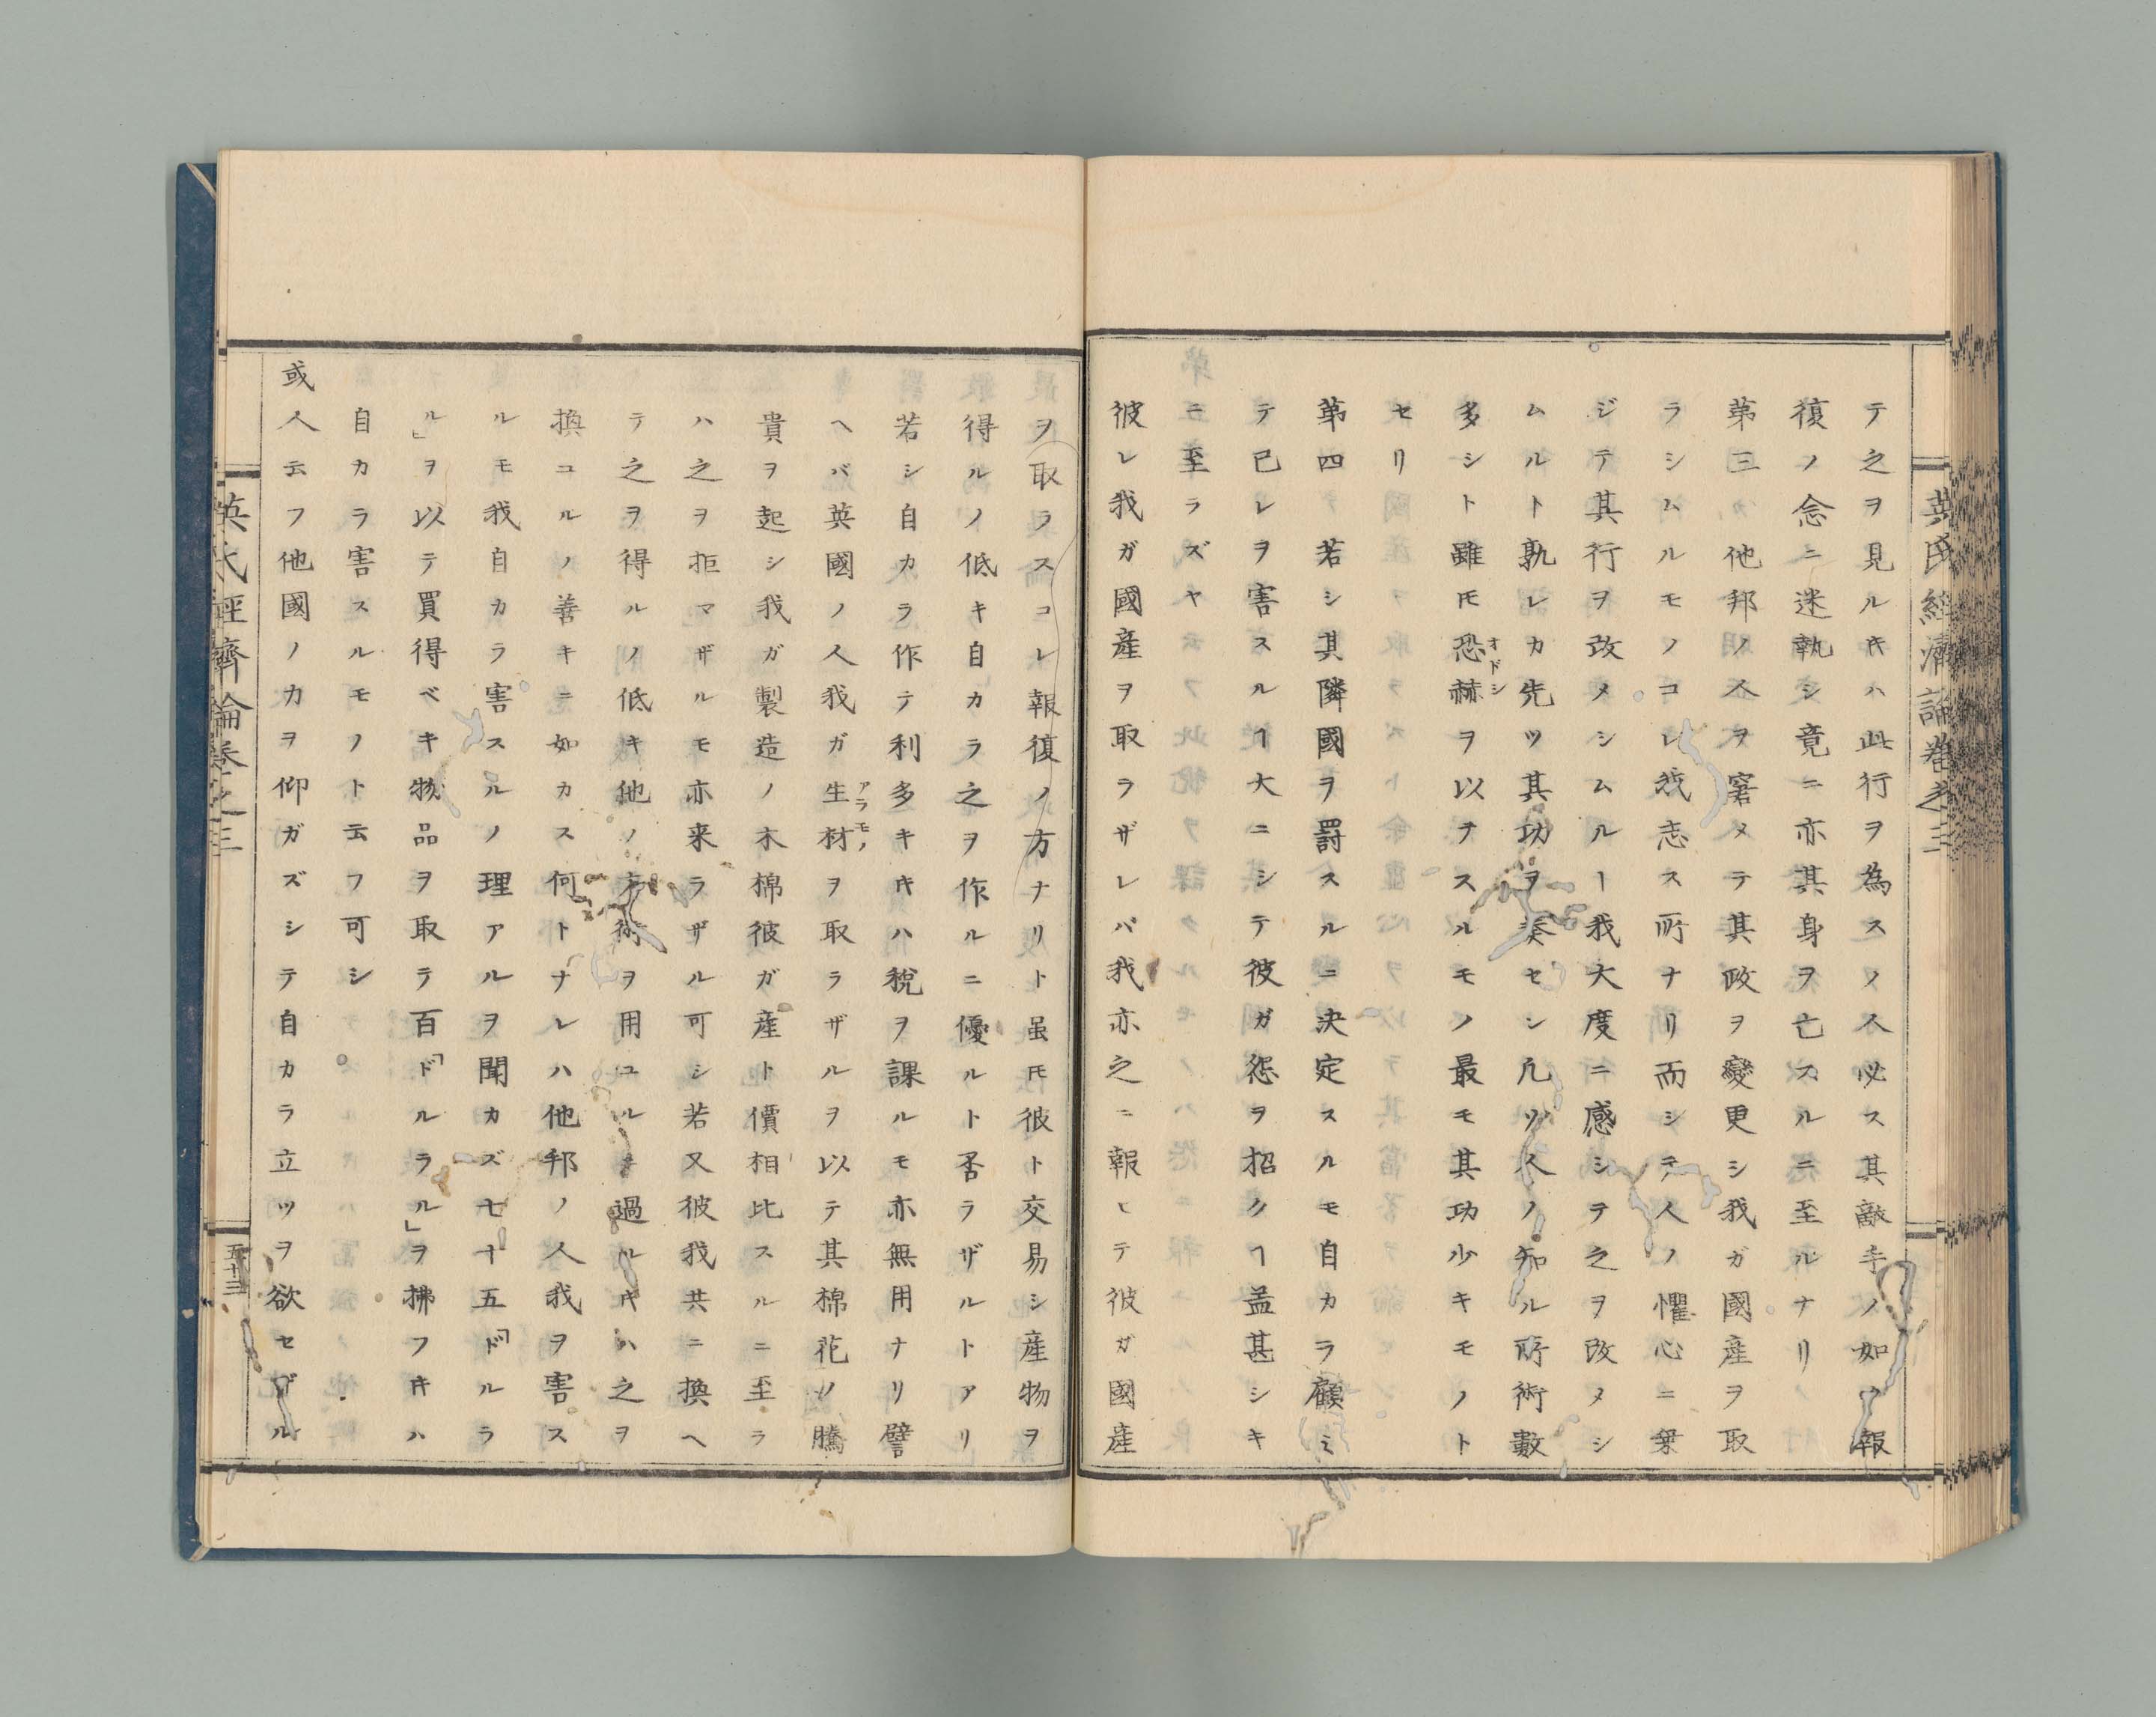 英氏經濟論卷之三
テ之ヲ見ルキハ此行ヲ為スノ人必ス其敵手ノ如ク報
復ノ念ニ迷執シ竟ニ亦其身ヲ亡スルニ至ルナリ
第三 他邦ノ人ヲ窘メテ其政ヲ變更シ我ガ國産ヲ取
ラシムルモノコレ我志ス所ナリ而シテ人ノ懼心ニ乗
ジテ其行ヲ改メシムルヿ我大度ニ感シテ之ヲ改メシ
ムルト孰レカ先ツ其功ヲ奏セン凡ソ人ノ知ル所術數
多シト雖モ恐赫ヲ以テスルモノ最モ其功少キモノト
オドシ
セリ
第四 若シ其隣國ヲ罸スルニ決定スルモ自カラ顧ミ
テ已レヲ害スルヿ大ニシテ彼ガ怨ヲ招クヿ益甚シキ
ニ至ラズヤ
彼レ我ガ國産ヲ取ラザレバ我亦之ニ報ヒテ彼ガ國産
ヲ取ラスコレ報復ノ方ナリト虽モ彼ト交易シ産物ヲ
得ルノ低キ自カラ之ヲ作ルニ優ルト否ラザルトアリ
若シ自カラ作テ利多キキハ稅ヲ課ルモ亦無用ナリ譬
ヘバ英國ノ人我ガ生材ヲ取ラザルヲ以テ其棉花ノ騰
アラモノ
貴ヲ起シ我ガ製造ノ木棉彼ガ産ト價相比スルニ至ラ
ハ之ヲ拒マザルモ亦来ラザル可シ若又彼我共ニ換ヘ
テ之ヲ得ルノ低キ他ノ方術ヲ用ユルニ過ルキハ之ヲ
換コルノ善キニ如カス何トナレハ他邦ノ人我ヲ害ス
ルモ我自カラ害スルノ理アルヲ聞カズ七十五「ドルラ
ル」ヲ以テ買得ベキ物品ヲ取テ百「ドルラル」ヲ拂フキハ
自カラ害スルモノト云フ可シ
或人云フ他國ノ力ヲ仰ガズシテ自カラ立ツヲ欲セザル
英氏經濟論卷之三
五十三